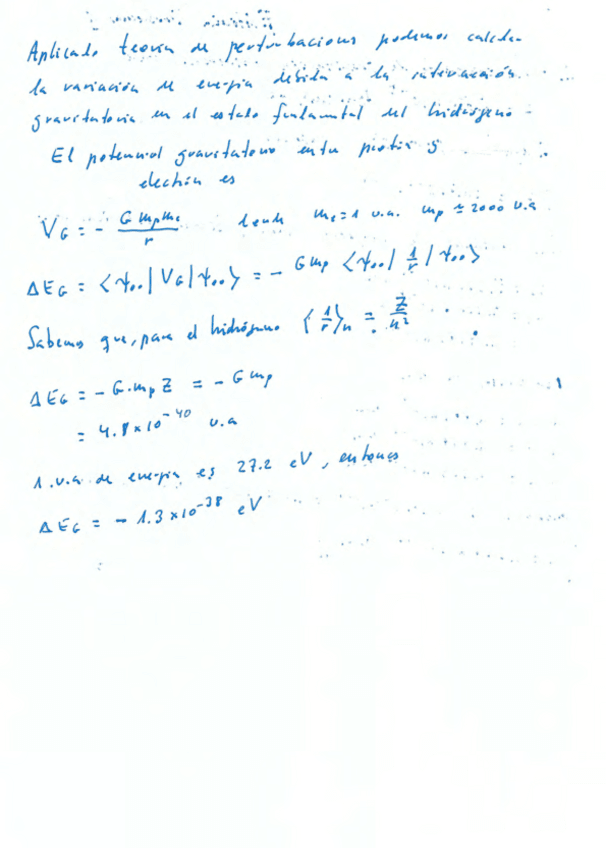 Aplicado teoría de perturbaciones podemos calcular
la variación de energía debida a la interacción
gravitatoria en el estado fundamental del hidrógeno.
El potencial gravitatorio entre protón y
electrón es
V_G = - \frac{G m_p m_e}{r} donde m_e = 1 u.a. m_p ≃ 2000 u.a
ΔE_G = ⟨ψ_{00}| V_G |ψ_{00}⟩ = - G m_p ⟨ψ_{00}| \frac{1}{r} |ψ_{00}⟩
Sabemos que, para el hidrógeno ⟨\frac{1}{r}⟩_n = \frac{Z}{n^2}
ΔE_G = - G \cdot m_p Z = - G m_p
= 4.8 × 10^{-40} u.a
1 u.a de energía es 27.2 eV, entonces
ΔE_G = - 1.3 × 10^{-38} eV